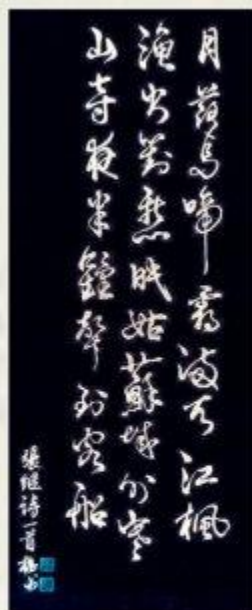 月落烏啼霜满天江楓
渔火對愁眠姑蘇城外寒
山寺夜半鐘聲到客船
張继诗一首